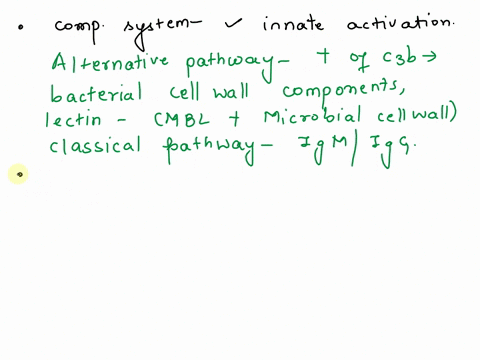 • comp. system - ✓ innate activation.
Alternative pathway - + of c3b →
bacterial cell wall components,
lectin - (MBL + Microbial cell wall)
classical pathway - IgM / IgG.
•